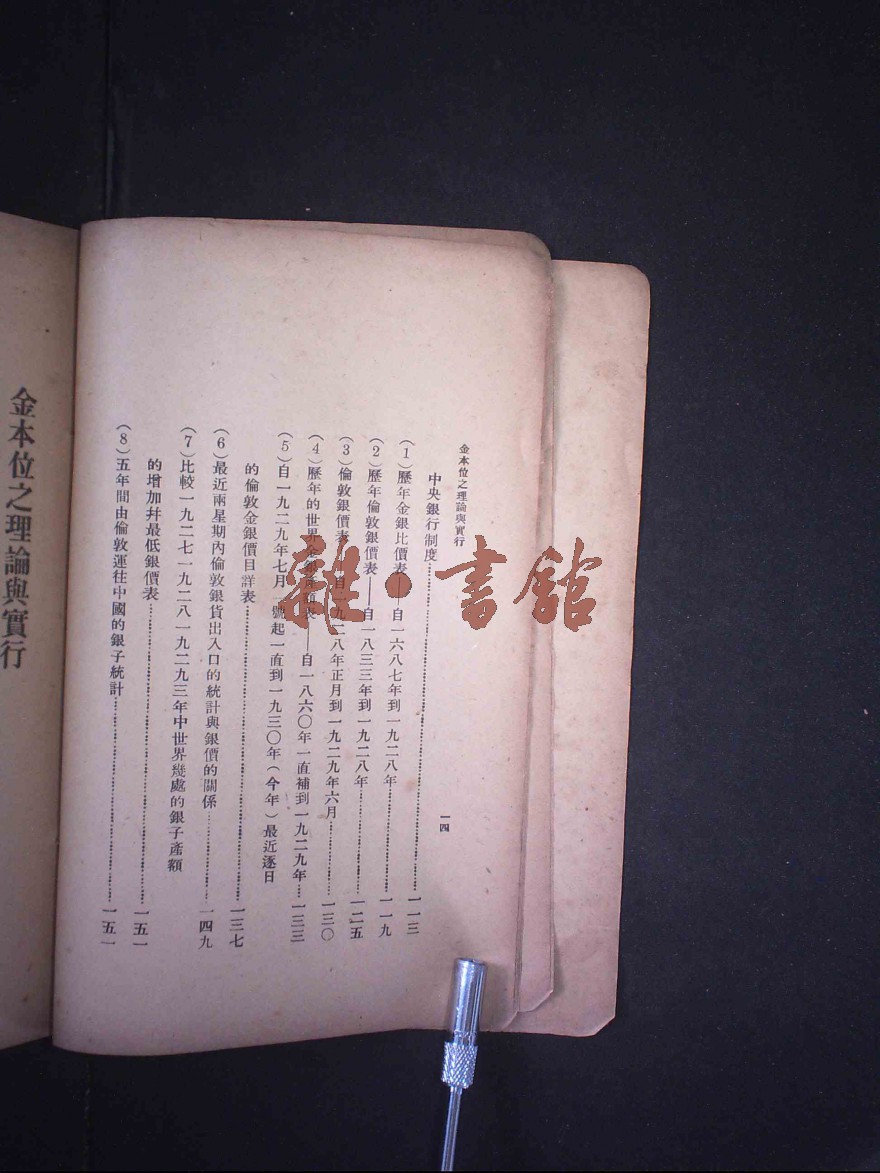 金本位之理論與實行
一四
中央銀行制度……一一三
(1)歷年金銀比價表——自一六八七年到一九二八年……一一九
(2)歷年倫敦銀價表——自一八三三年到一九二八年……一二五
(3)倫敦銀價表——自一九二八年正月到一九二九年六月……一三〇
(4)歷年的世界金銀產額表——自一八六〇年一直補到一九二九年……一三三
(5)自一九二九年七月一號起一直到一九三〇年(今年)最近逐日
的倫敦金銀價目詳表……一三七
(6)最近兩星期內倫敦銀貨出入口的統計與銀價的關係……一四九
(7)比較一九二七一九二八一九二九三年中世界幾處的銀子產額
的增加幷最低銀價表……一五一
(8)五年間由倫敦運往中國的銀子統計……一五一
金本位之理論與實行
雜·書館